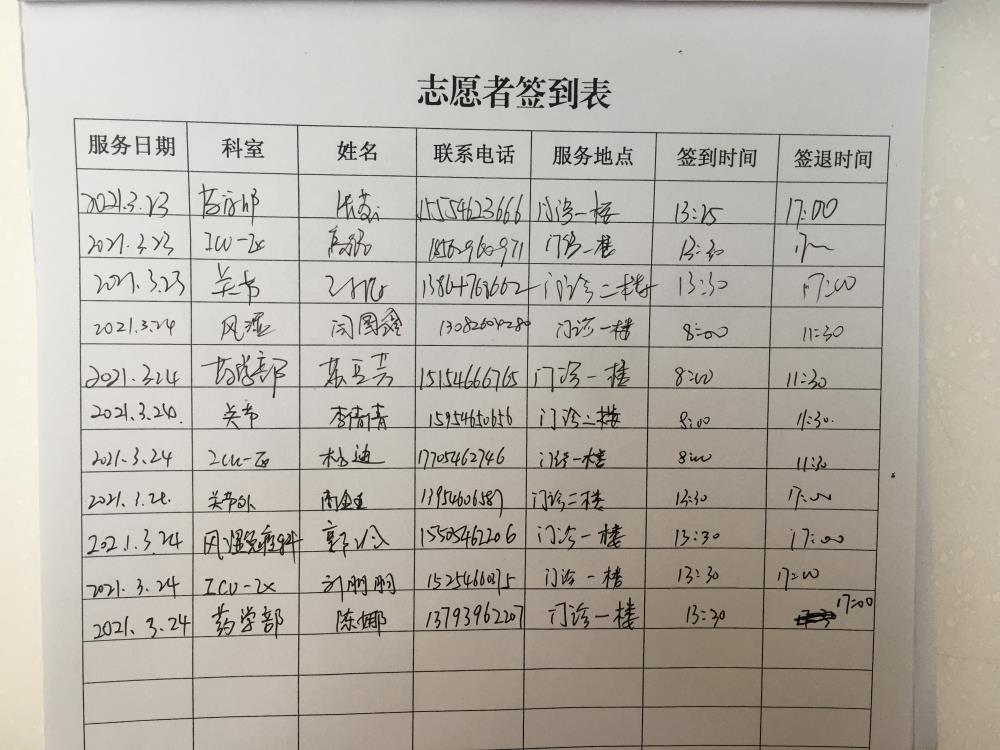 志愿者签到表
服务日期 科室 姓名 联系电话 服务地点 签到时间 签退时间
2021.3.23 15554623666 门诊一楼 13:25 17:00
2021.3.23 ICU-区 门诊一楼 13:30
2021.3.23 关节 门诊二楼 13:30 17:00
2021.3.24 风湿 闫图鑫 13082604280 门诊一楼 8:00 11:30
2021.3.24 药学部 15154666765 门诊一楼 8:00 11:30
2021.3.24. 关节 李青青 15954650656 门诊二楼 8:00 11:30.
2021.3.24 ICU-区 杨迪 17705462746 门诊一楼 8:00 11:30
关节外 13954606587 门诊二楼 13:30 17:00
2021.3.24 风湿免疫科 15505462206 门诊一楼 13:30 17:00
2021.3.24 ICU-区 刘明明 门诊一楼 13:30 17:00
2021.3.24 药学部 陈娜 13793962207 门诊一楼 13:30 17:00